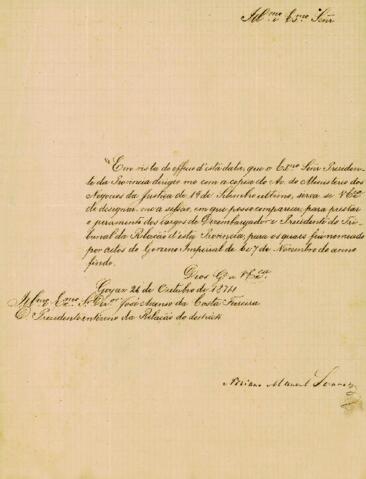 Ill.mo e Ex.mo Senr
Em vista do officio d'esta data, que o Ex.mo Senr Presiden-
te da Provincia dirigio me com a copia do Av. do Ministerio dos
Negocios da Justiça de 19 de Setembro ultimo, sirva se V. Ex.cia
de designar-me a sessão, em que posso comparecer, para prestar
o juramento dos cargos de Dezembargador e Presidente do Tri-
bunal da Relação d'esta Provincia, para os quais fui nomeado
por actos do Governo Imperial de 6 e 7 de Novembro do anno
findo.
Deos G.e a V. Ex.cia
Goyaz 24 de Outubro de 1874
Ex.mo Sr. Dez.or José Ascenso da Costa Ferreira
D. Presidente interino da Relação do districto
Manoel